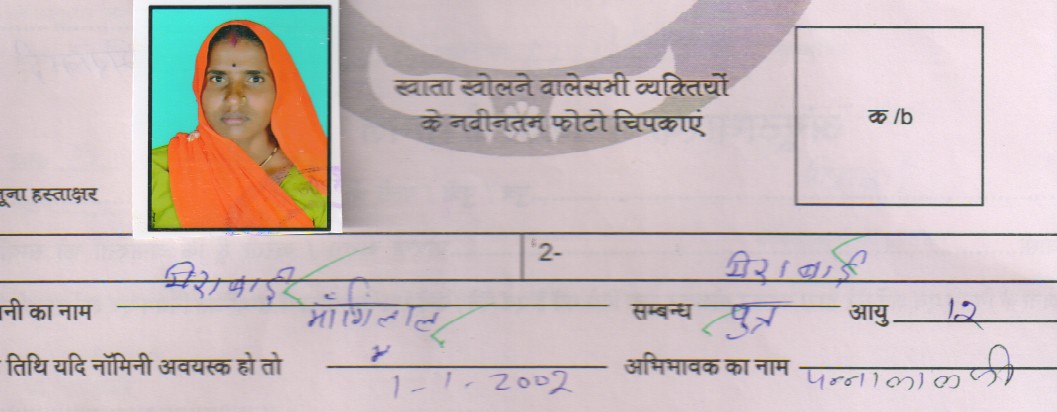 खाता खोलने वालेसभी व्यक्तियों
के नवीनतम फोटो चिपकाएं
क /b
नमूना हस्ताक्षर
मिराबाई 2- मिराबाई
नी का नाम माँगिलाल सम्बन्ध पुत्र आयु 12
तिथि यदि नॉमिनी अवयस्क हो तो 1-1-2002 अभिभावक का नाम पन्नालाल जी